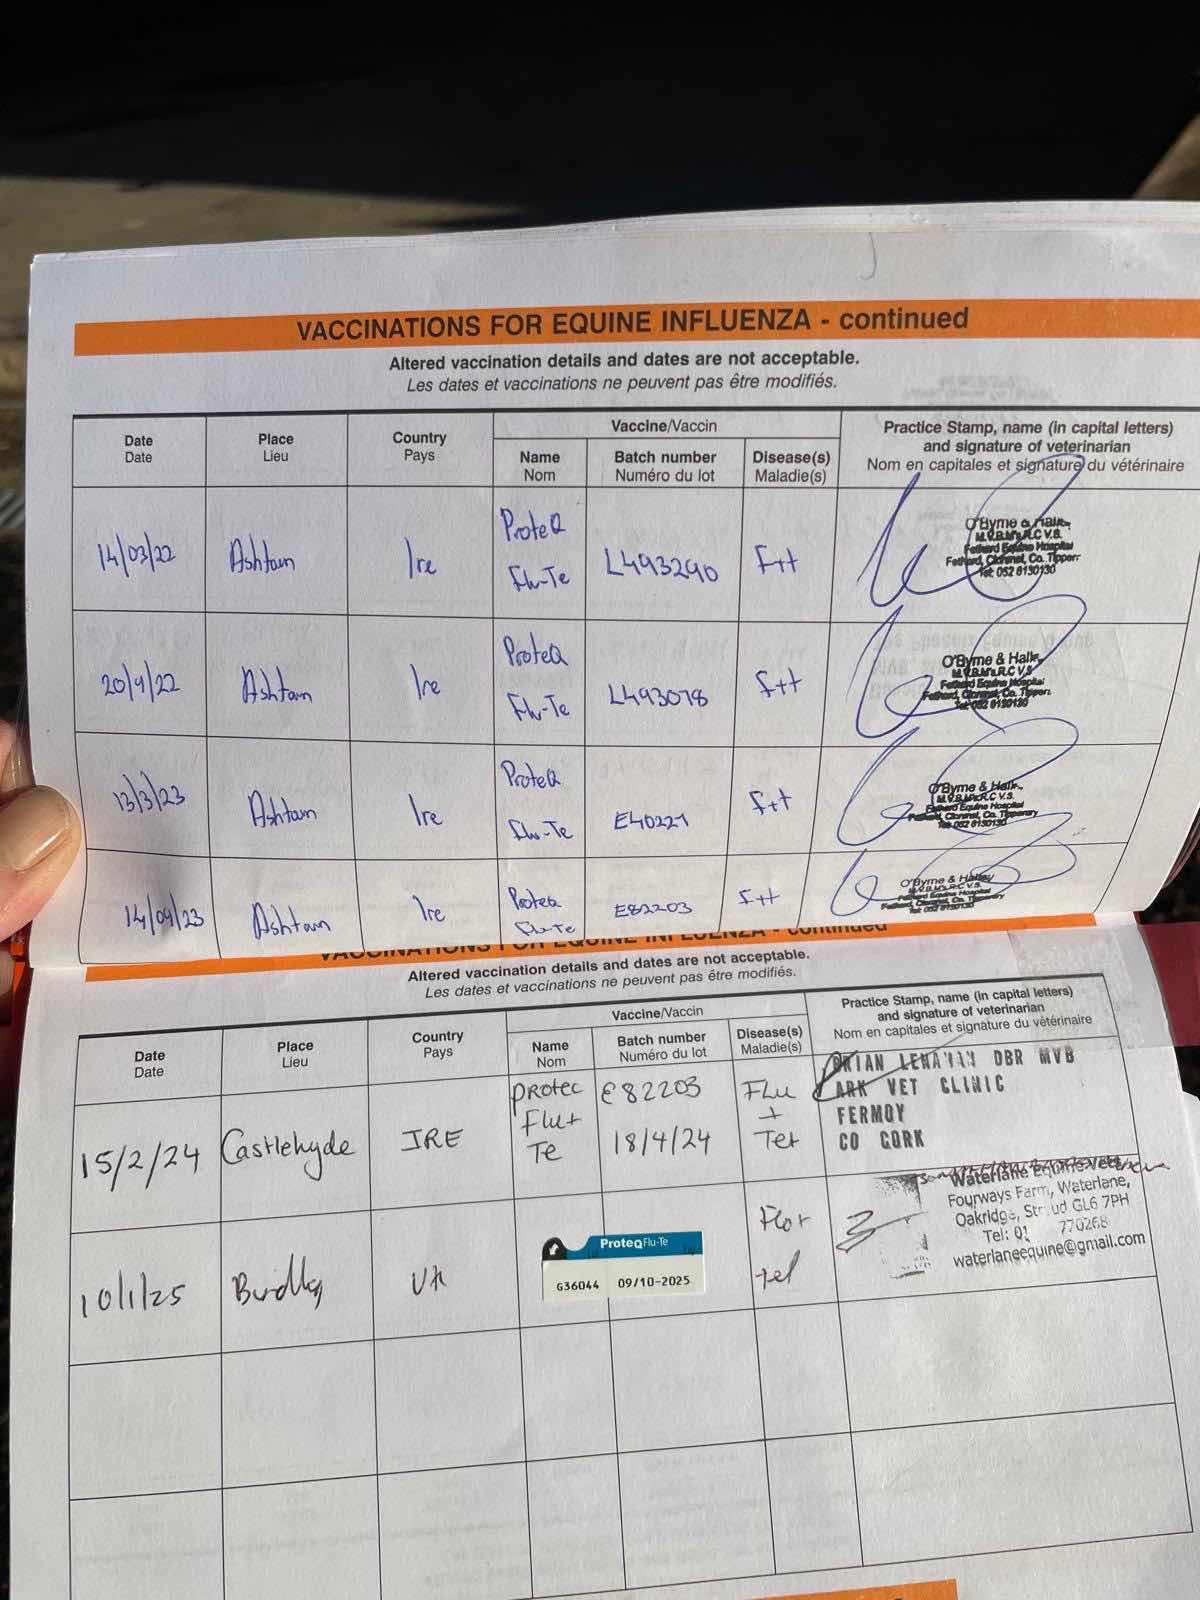 VACCINATIONS FOR EQUINE INFLUENZA - continued
Altered vaccination details and dates are not acceptable.
Les dates et vaccinations ne peuvent pas être modifiés.
Date Place Country Vaccine/Vaccin Practice Stamp, name (in capital letters)
Date Lieu Pays Name Batch number Disease(s) and signature of veterinarian
Nom Numéro du lot Maladie(s) Nom en capitales et signature du vétérinaire
14/03/22 Ashtown Ire ProteQ Flu-Te L493290 F+t
O'Byrne & Halley
M.V.B. M's.R.C.V.S.
Fethard Equine Hospital
Fethard, Clonmel, Co. Tipperary
Tel: 052 6130130
20/9/22 Ashtown Ire ProteQ Flu-Te L493078 F+t
O'Byrne & Halley
M.V.B. M's.R.C.V.S.
Fethard Equine Hospital
Fethard, Clonmel, Co. Tipperary
Tel: 052 6130130
13/3/23 Ashtown Ire ProteQ Flu-Te E40221 F+t
O'Byrne & Halley
M.V.B. M's.R.C.V.S.
Fethard Equine Hospital
Fethard, Clonmel, Co. Tipperary
Tel: 052 6130130
14/09/23 Ashtown Ire ProteQ Flu-Te E82203 F+t
O'Byrne & Halley
M.V.B. M's.R.C.V.S.
Fethard Equine Hospital
Fethard, Clonmel, Co. Tipperary
VACCINATIONS FOR EQUINE INFLUENZA - continued
Altered vaccination details and dates are not acceptable.
Les dates et vaccinations ne peuvent pas être modifiés.
Date Place Country Vaccine/Vaccin Practice Stamp, name (in capital letters)
Date Lieu Pays Name Batch number Disease(s) and signature of veterinarian
Nom Numéro du lot Maladie(s) Nom en capitales et signature du vétérinaire
15/2/24 Castlehyde IRE Protec Flu+ Te E82203 18/4/24 Flu + Tet
BRIAN LENAHAN DBR MVB
ARK VET CLINIC
FERMOY
CO CORK
10/1/25 UK
ProteqFlu-Te
G36044 09/10-2025
tet
Waterlane Equine Vets
Fourways Farm, Waterlane,
Oakridge, Stroud GL6 7PH
Tel: 01 770268
waterlaneequine@gmail.com